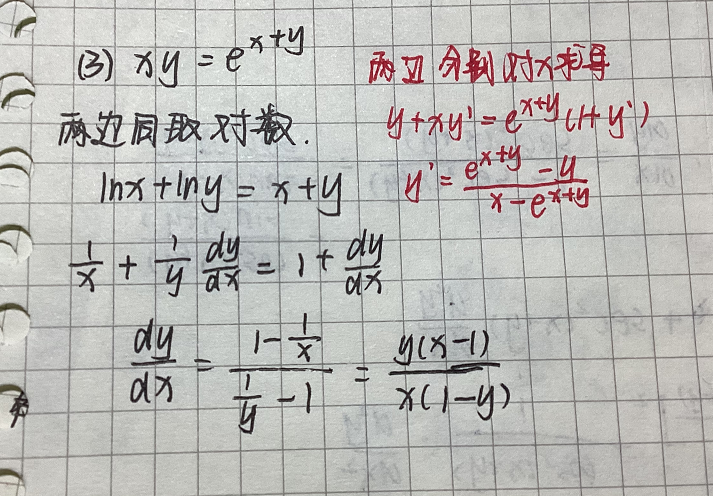 (3) xy = e^{x+y}
两边同取对数.
lnx+lny = x+y
1/x + 1/y dy/dx = 1 + dy/dx
dy/dx = (1 - 1/x)/(1/y - 1) = y(x-1)/x(1-y)
两边分别对x求导
y+xy' = e^{x+y}(1+y')
y' = (e^{x+y} - y)/(x - e^{x+y})